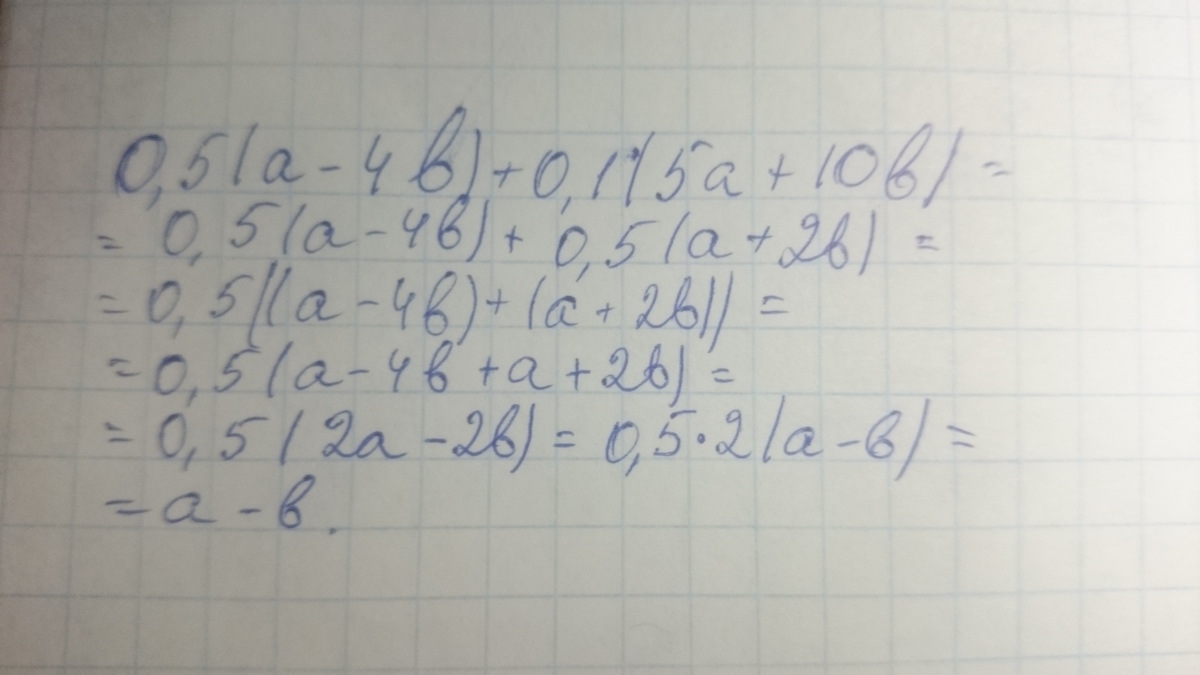 0,5(a-4в)+0,1(5a+10в)=
= 0,5(a-4в)+ 0,5(a+2в) =
= 0,5((a-4в)+(a+2в)) =
= 0,5(a-4в+a+2в) =
= 0,5(2a-2в) = 0,5·2(a-в) =
= a-в.